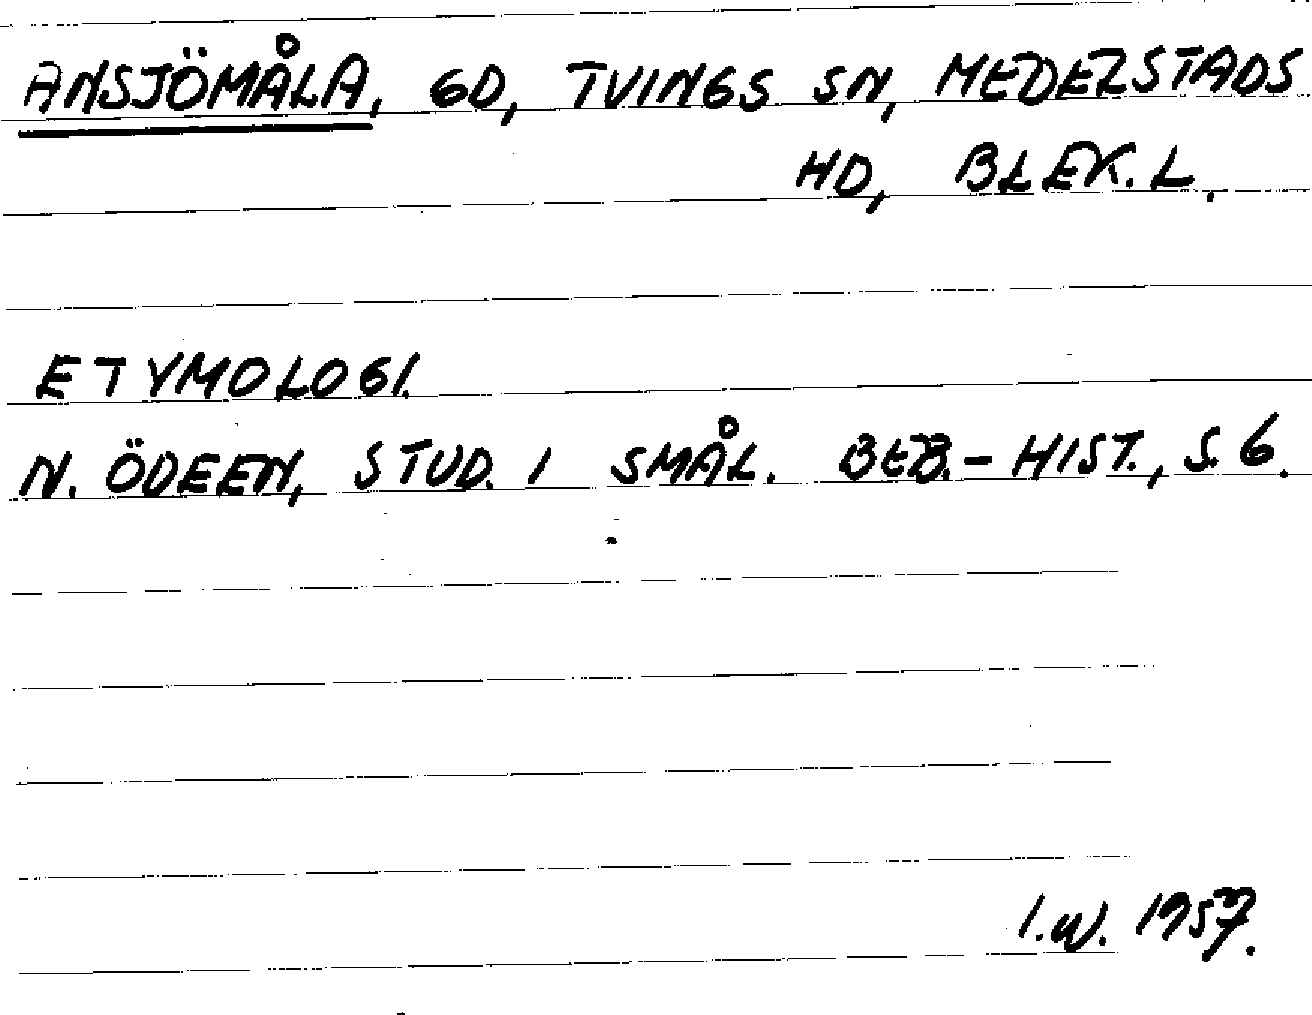 ANSJÖMÅLA, GD, TVINGS SN, MEDELSTADS
HD, BLEK. L.
ETYMOLOGI.
N. ÖDEEN, STUD. I SMÅL. BEB.-HIST., S. 6.
I.W. 1957.